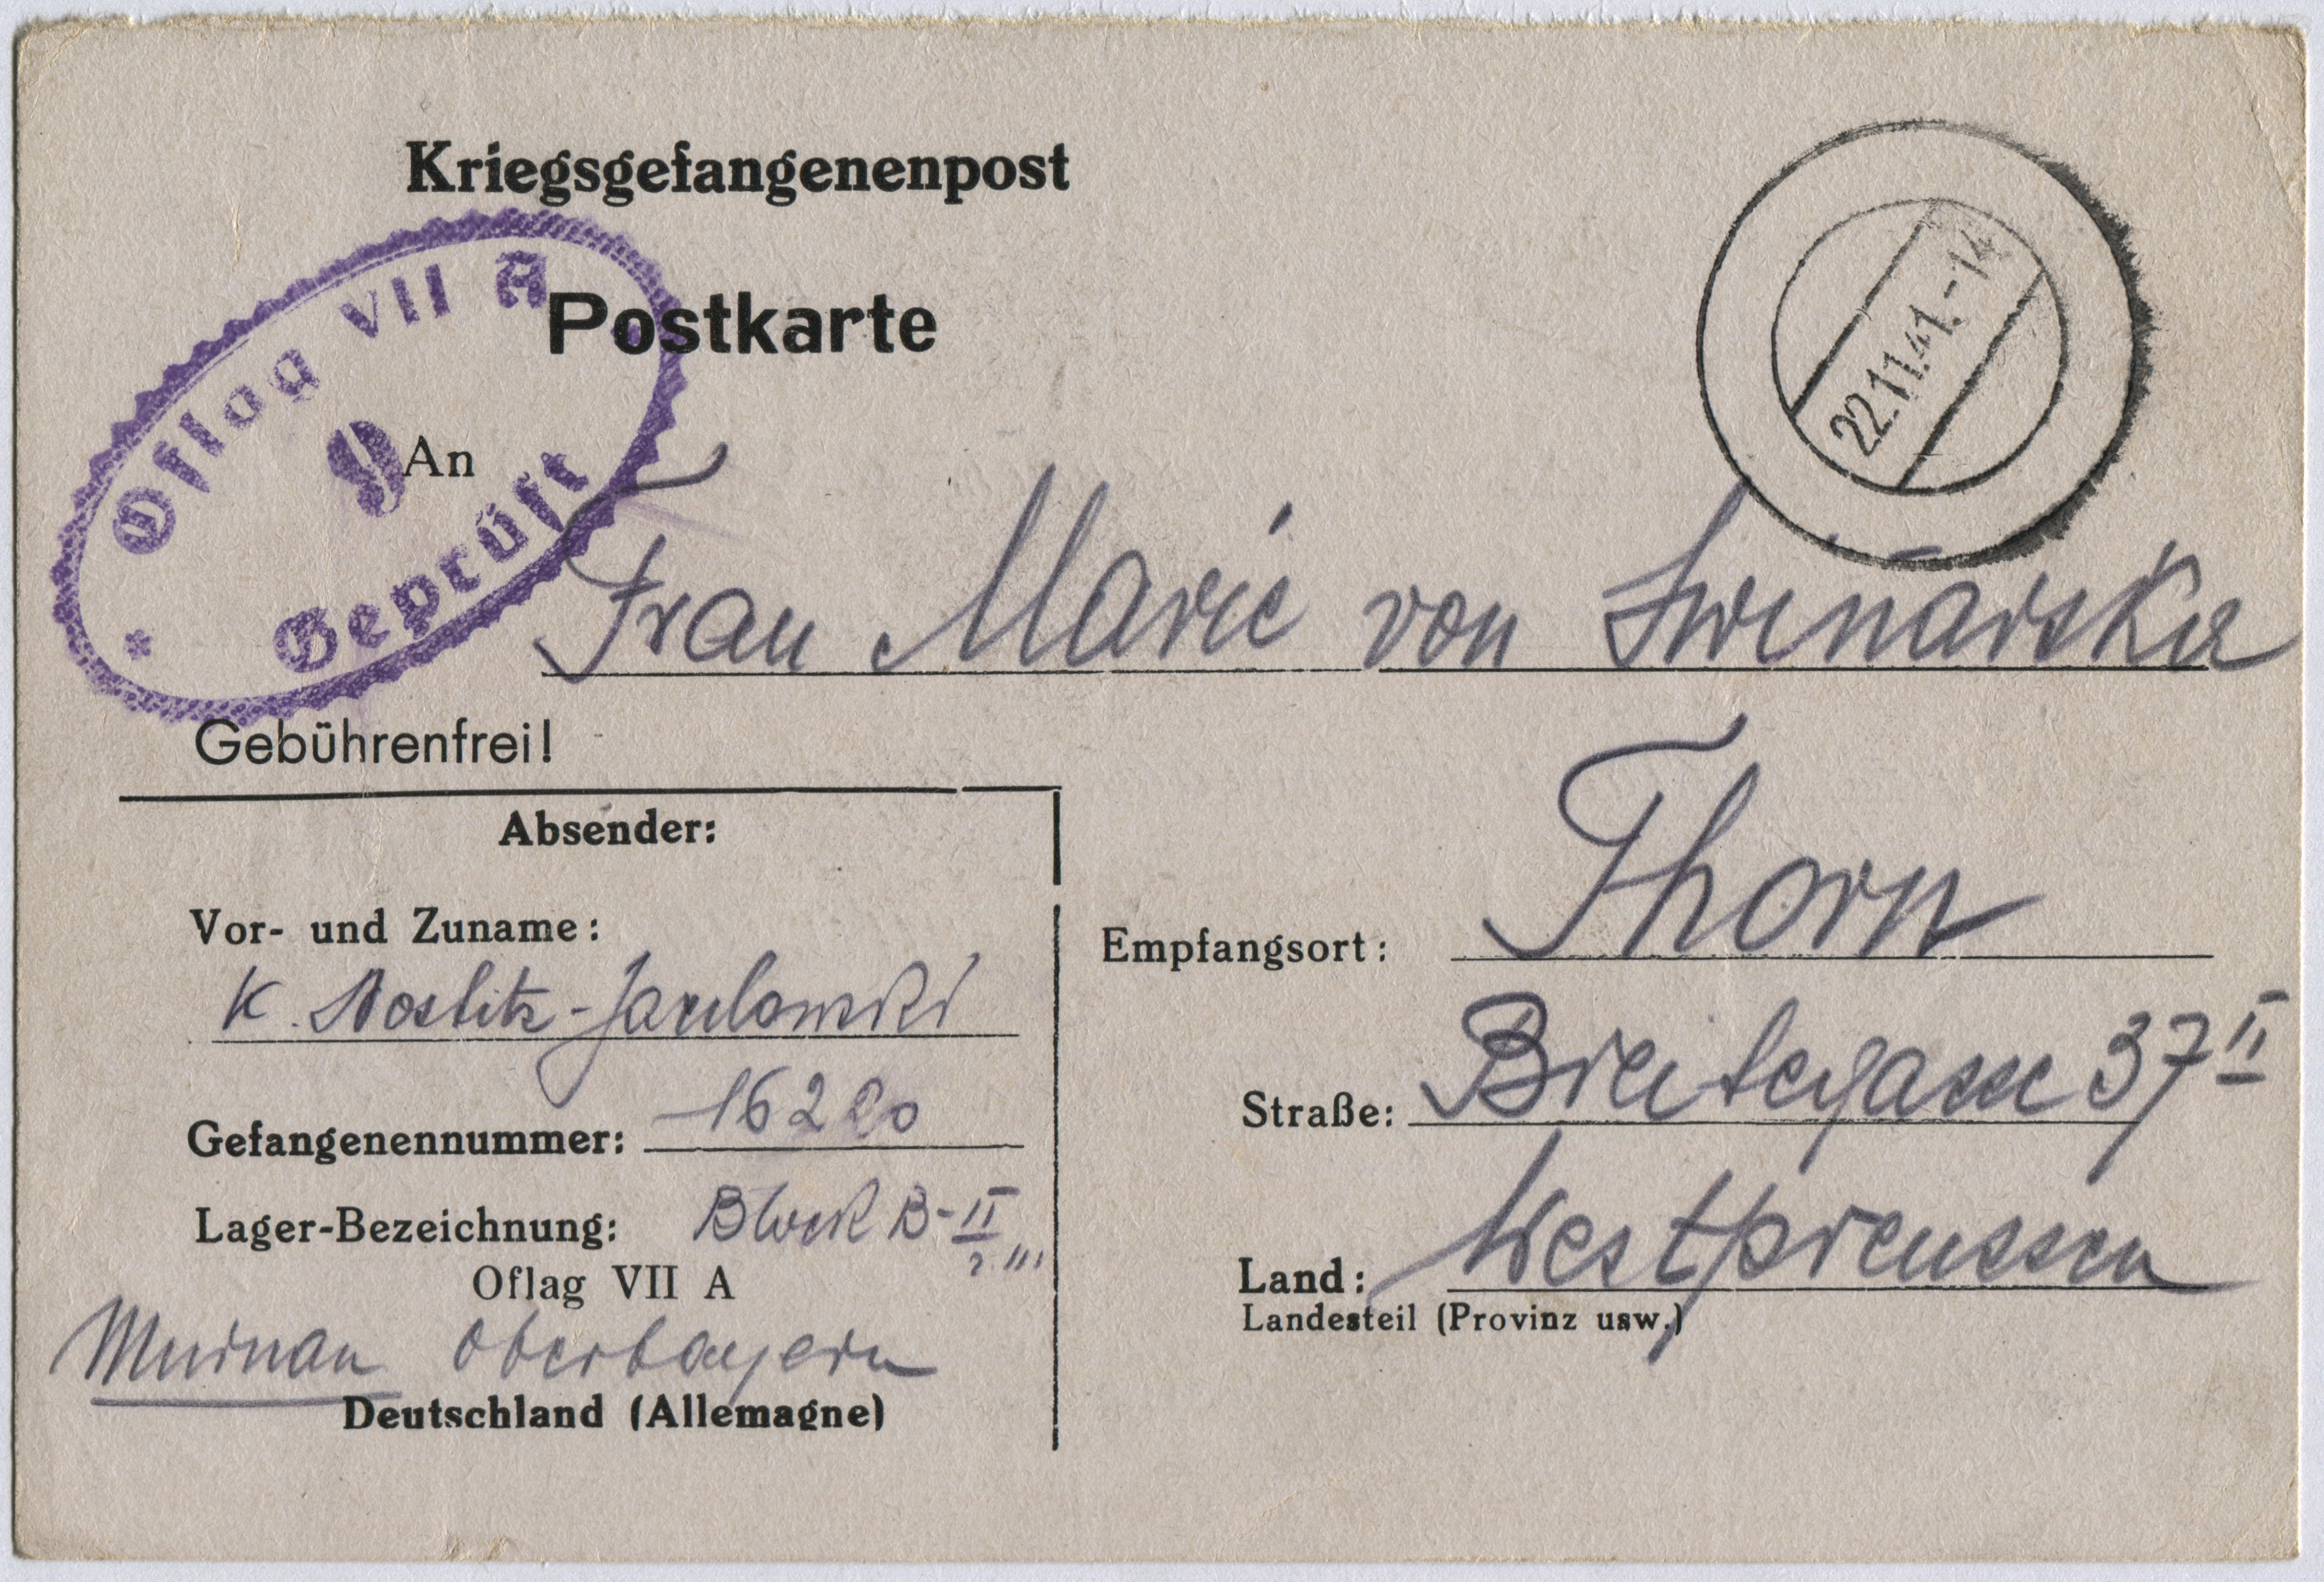 Kriegsgefangenenpost
Postkarte
Oflag VII A
9
Geprüft
22.11.41.-14
An
Frau Marie von Swinarska
Gebührenfrei!
Absender:
Vor- und Zuname:
K. Nostitz-Jackowski
Gefangenennummer: 16220
Lager-Bezeichnung: Block B-II
Oflag VII A
Murnau Oberbayern
Deutschland (Allemagne)
Empfangsort: Thorn
Straße: Breitegasse 37 II
Land: Westpreussen
Landesteil (Provinz usw.)